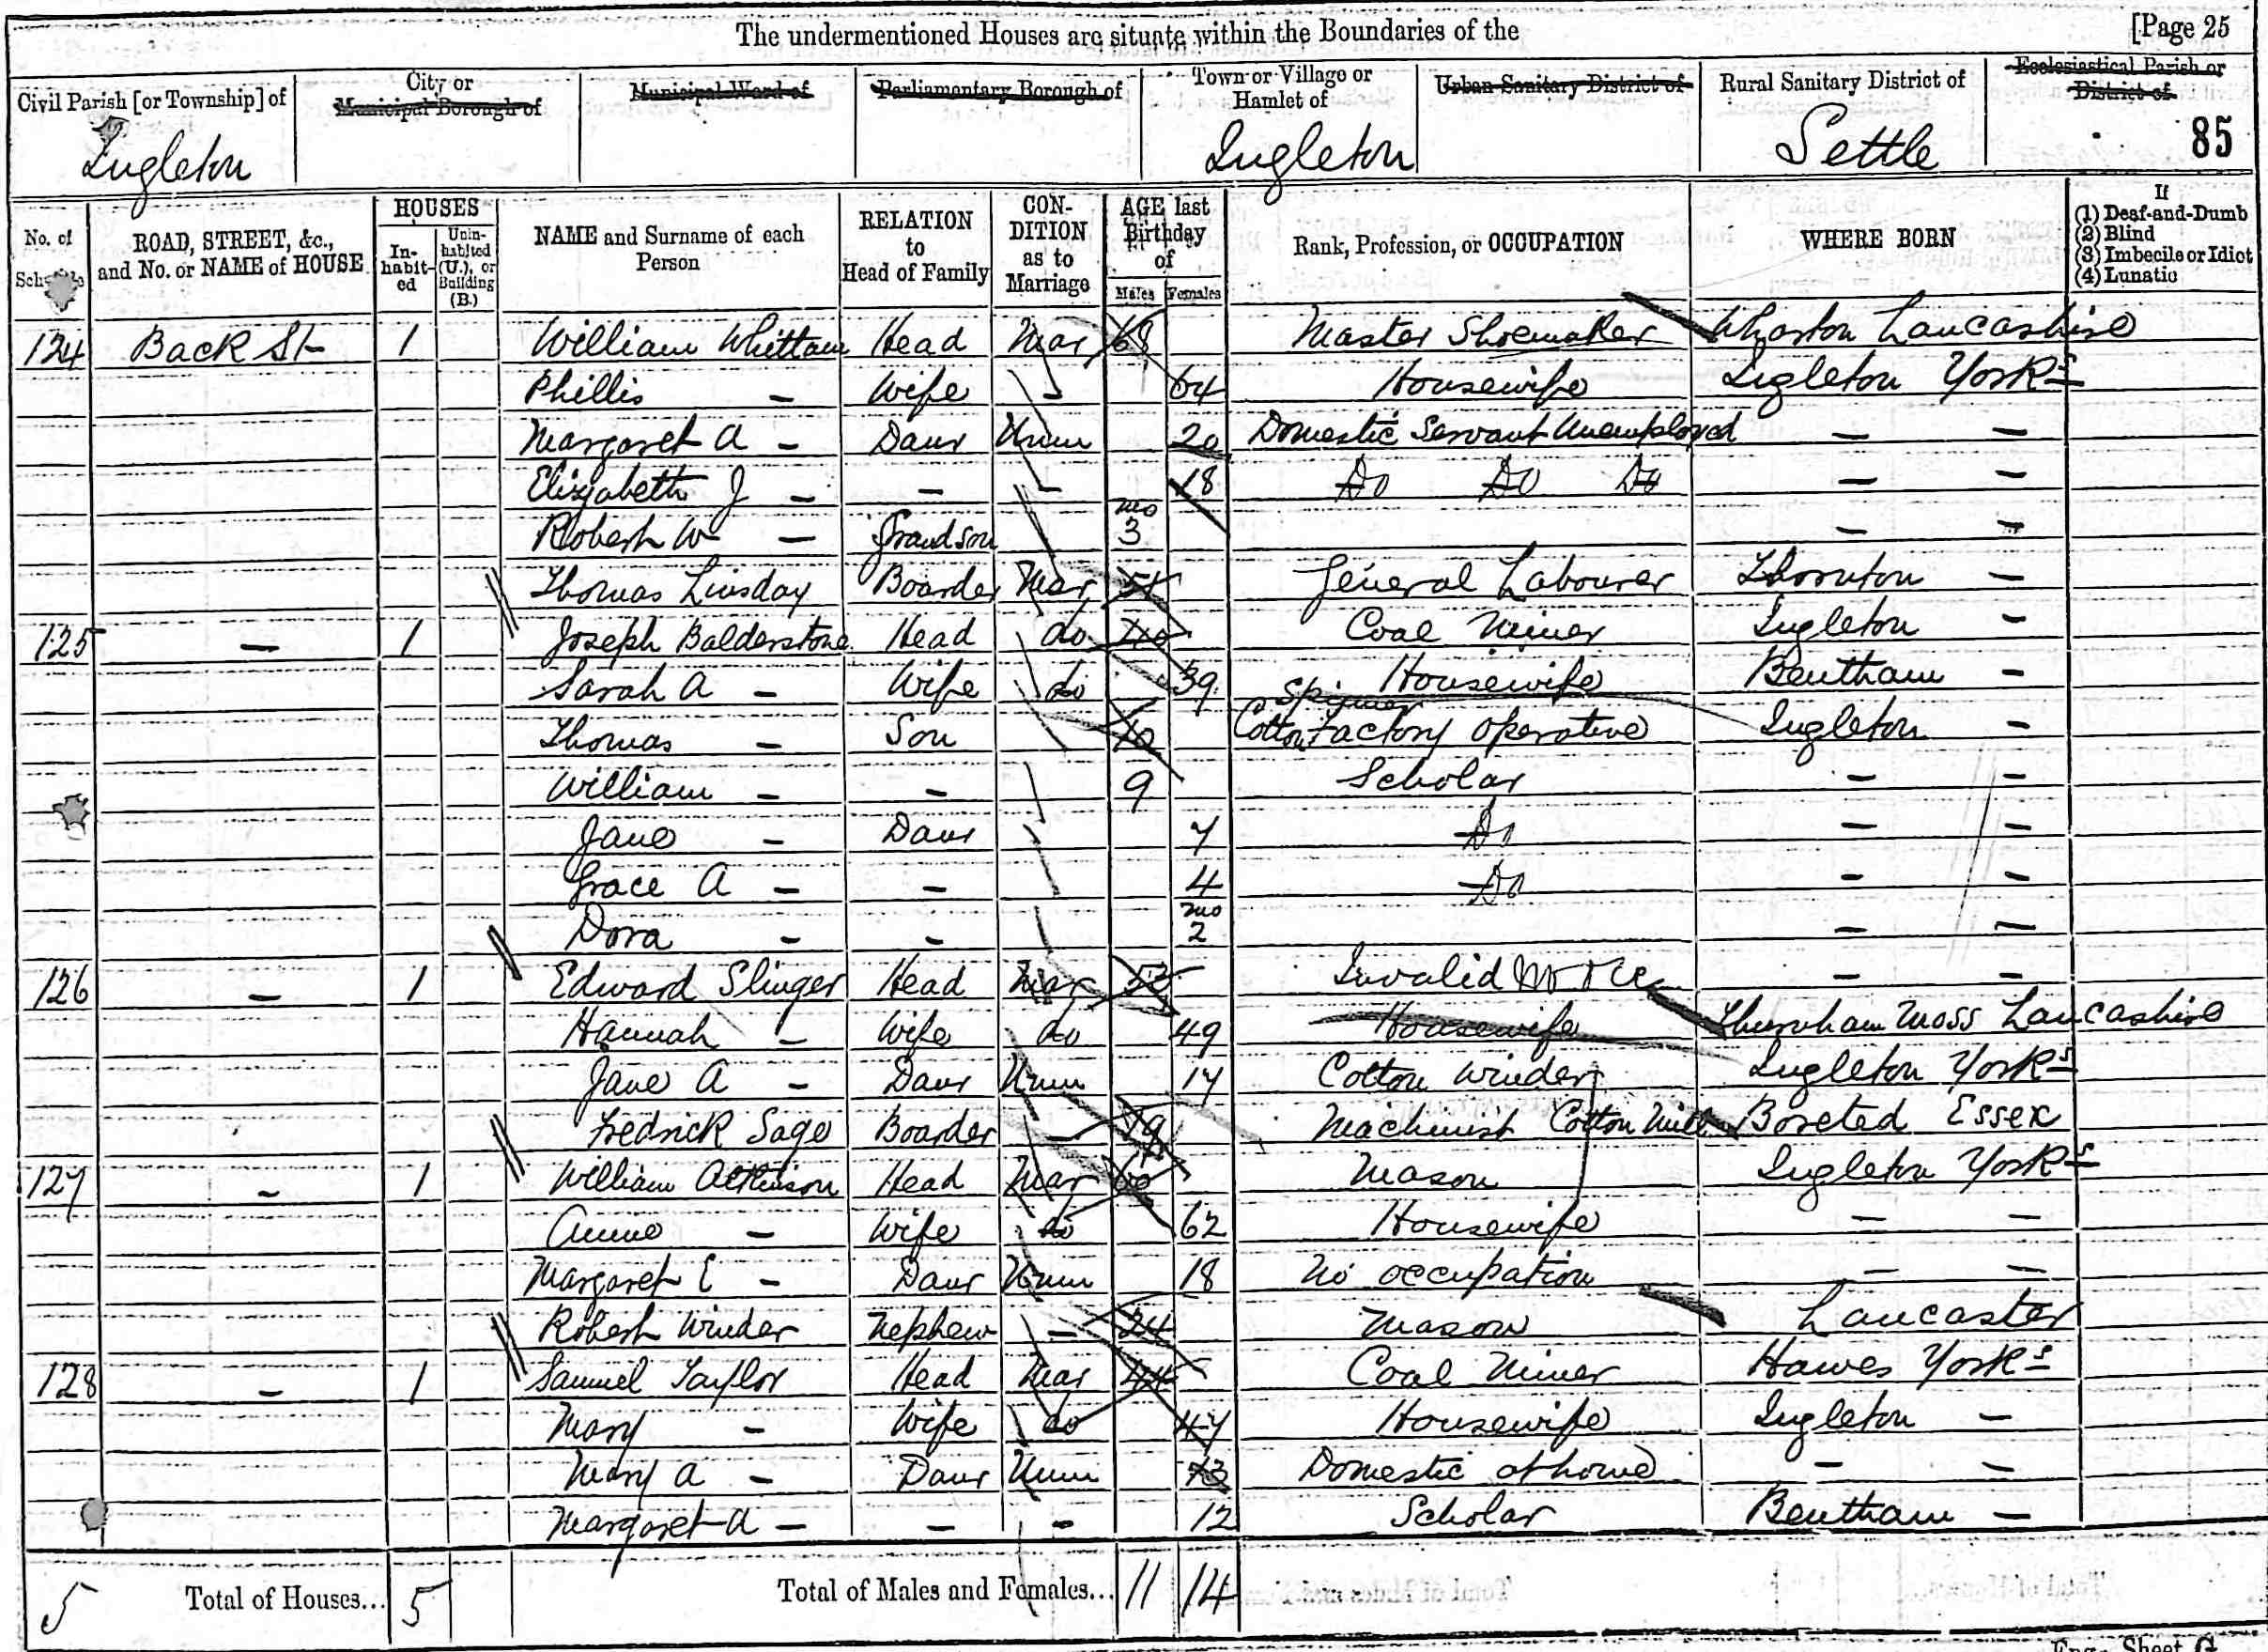 The undermentioned Houses are situate within the Boundaries of the [Page 25
Civil Parish [or Township] of City or Municipal Borough of Municipal Ward of Parliamentary Borough of Town or Village or Hamlet of Urban Sanitary District of Rural Sanitary District of Ecclesiastical Parish or District of
Ingleton Ingleton Settle 85
No. of Schedule ROAD, STREET, &c., and No. or NAME of HOUSE HOUSES Inhabited Uninhabited (U.), or Building (B.) NAME and Surname of each Person RELATION to Head of Family CONDITION as to Marriage AGE last Birthday of Males Females Rank, Profession, or OCCUPATION WHERE BORN If (1) Deaf-and-Dumb (2) Blind (3) Imbecile or Idiot (4) Lunatic
124 Back St 1 William Whittam Head Mar 68 Master Shoemaker Wharton Lancashire
Phillis - Wife - 64 Housewife Ingleton Yorks
Margaret A - Daur Unm 20 Domestic Servant Unemployed - -
Elizabeth J - - - 18 Do Do Do - -
Robert W - Grandson mo 3 - -
Thomas Linsday Boarder Mar 51 General Labourer Thornton -
125 - 1 Joseph Balderstone Head do 40 Coal Miner Ingleton -
Sarah A - Wife do 39 Housewife Bentham -
Thomas - Son 10 Cotton Spinner Factory Operative Ingleton -
William - - 9 Scholar - -
Jane - Daur 7 Do - -
Grace A - - 4 Do - -
Dora - - mo 2 - -
126 - 1 Edward Slinger Head Mar 52 Invalid - -
Hannah - Wife do 49 Housewife Thurnham Moss Lancashire
Jane A - Daur Unm 17 Cotton Winder Ingleton Yorks
Fredrick Sage Boarder - 19 Machinist Cotton Mill Boxted Essex
127 - 1 William Atkinson Head Mar Mason Ingleton Yorks
Anne - Wife do 62 Housewife - -
Margaret E - Daur Unm 18 No occupation - -
Robert Winder Nephew - 24 Mason Lancaster
128 - 1 Samuel Taylor Head Mar 44 Coal Miner Hawes Yorks
Mary - Wife do 47 Housewife Ingleton -
Mary A - Daur Unm Domestic at home - -
Margaret A - - - 12 Scholar Bentham -
5 Total of Houses... 5 Total of Males and Females... 11 14
Eng.—Sheet G.